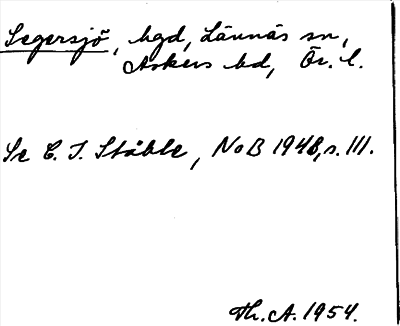 Segersjö, hgd, Lännäs sn,
Askers hd, Ör. l.
Se C. I. Ståhle, NoB 1948, s. 111.
Th. A. 1954.